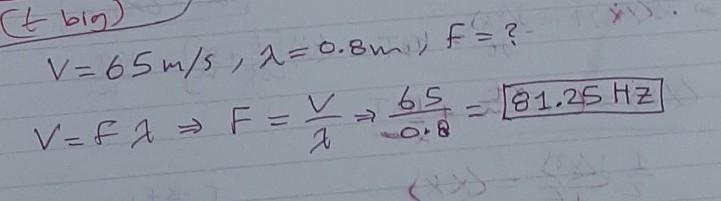 (t big)
V = 65 m/s, λ = 0.8m, F = ?
V = F λ ⇒ F = V/λ ⇒ 65/0.8 = 81.25 HZ